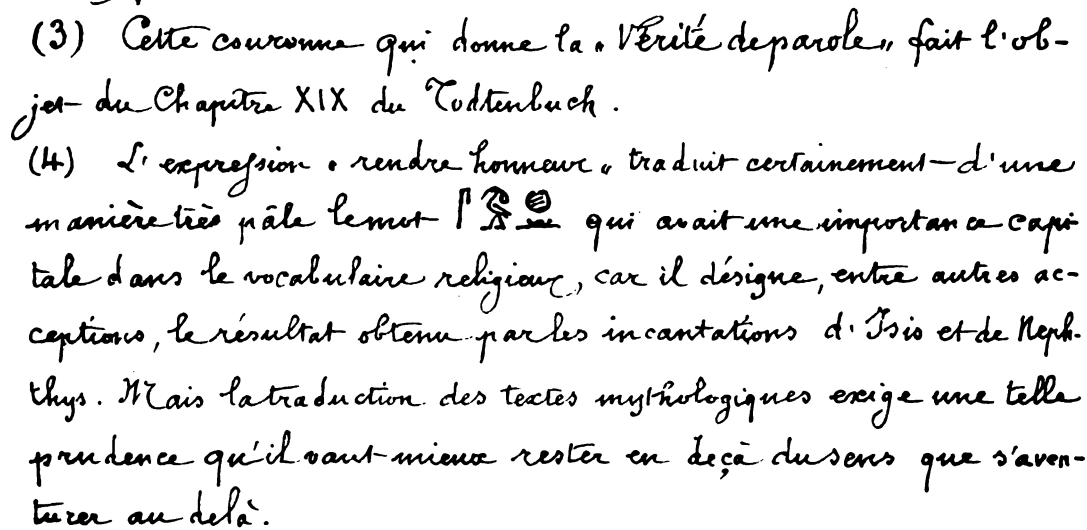 (3) Cette couronne qui donne la « Vérité de parole » fait l'ob-
jet du Chapitre XIX du Todtenbuch.
(4) L'expression « rendre honneur » traduit certainement d'une
manière très pâle le mot 𓋴𓅜𓐍 qui avait une importance capi-
tale dans le vocabulaire religieux, car il désigne, entre autres ac-
ceptions, le résultat obtenu par les incantations d'Isis et de Neph-
thys. Mais la traduction des textes mythologiques exige une telle
prudence qu'il vaut mieux rester en deçà du sens que s'aven-
turer au delà.